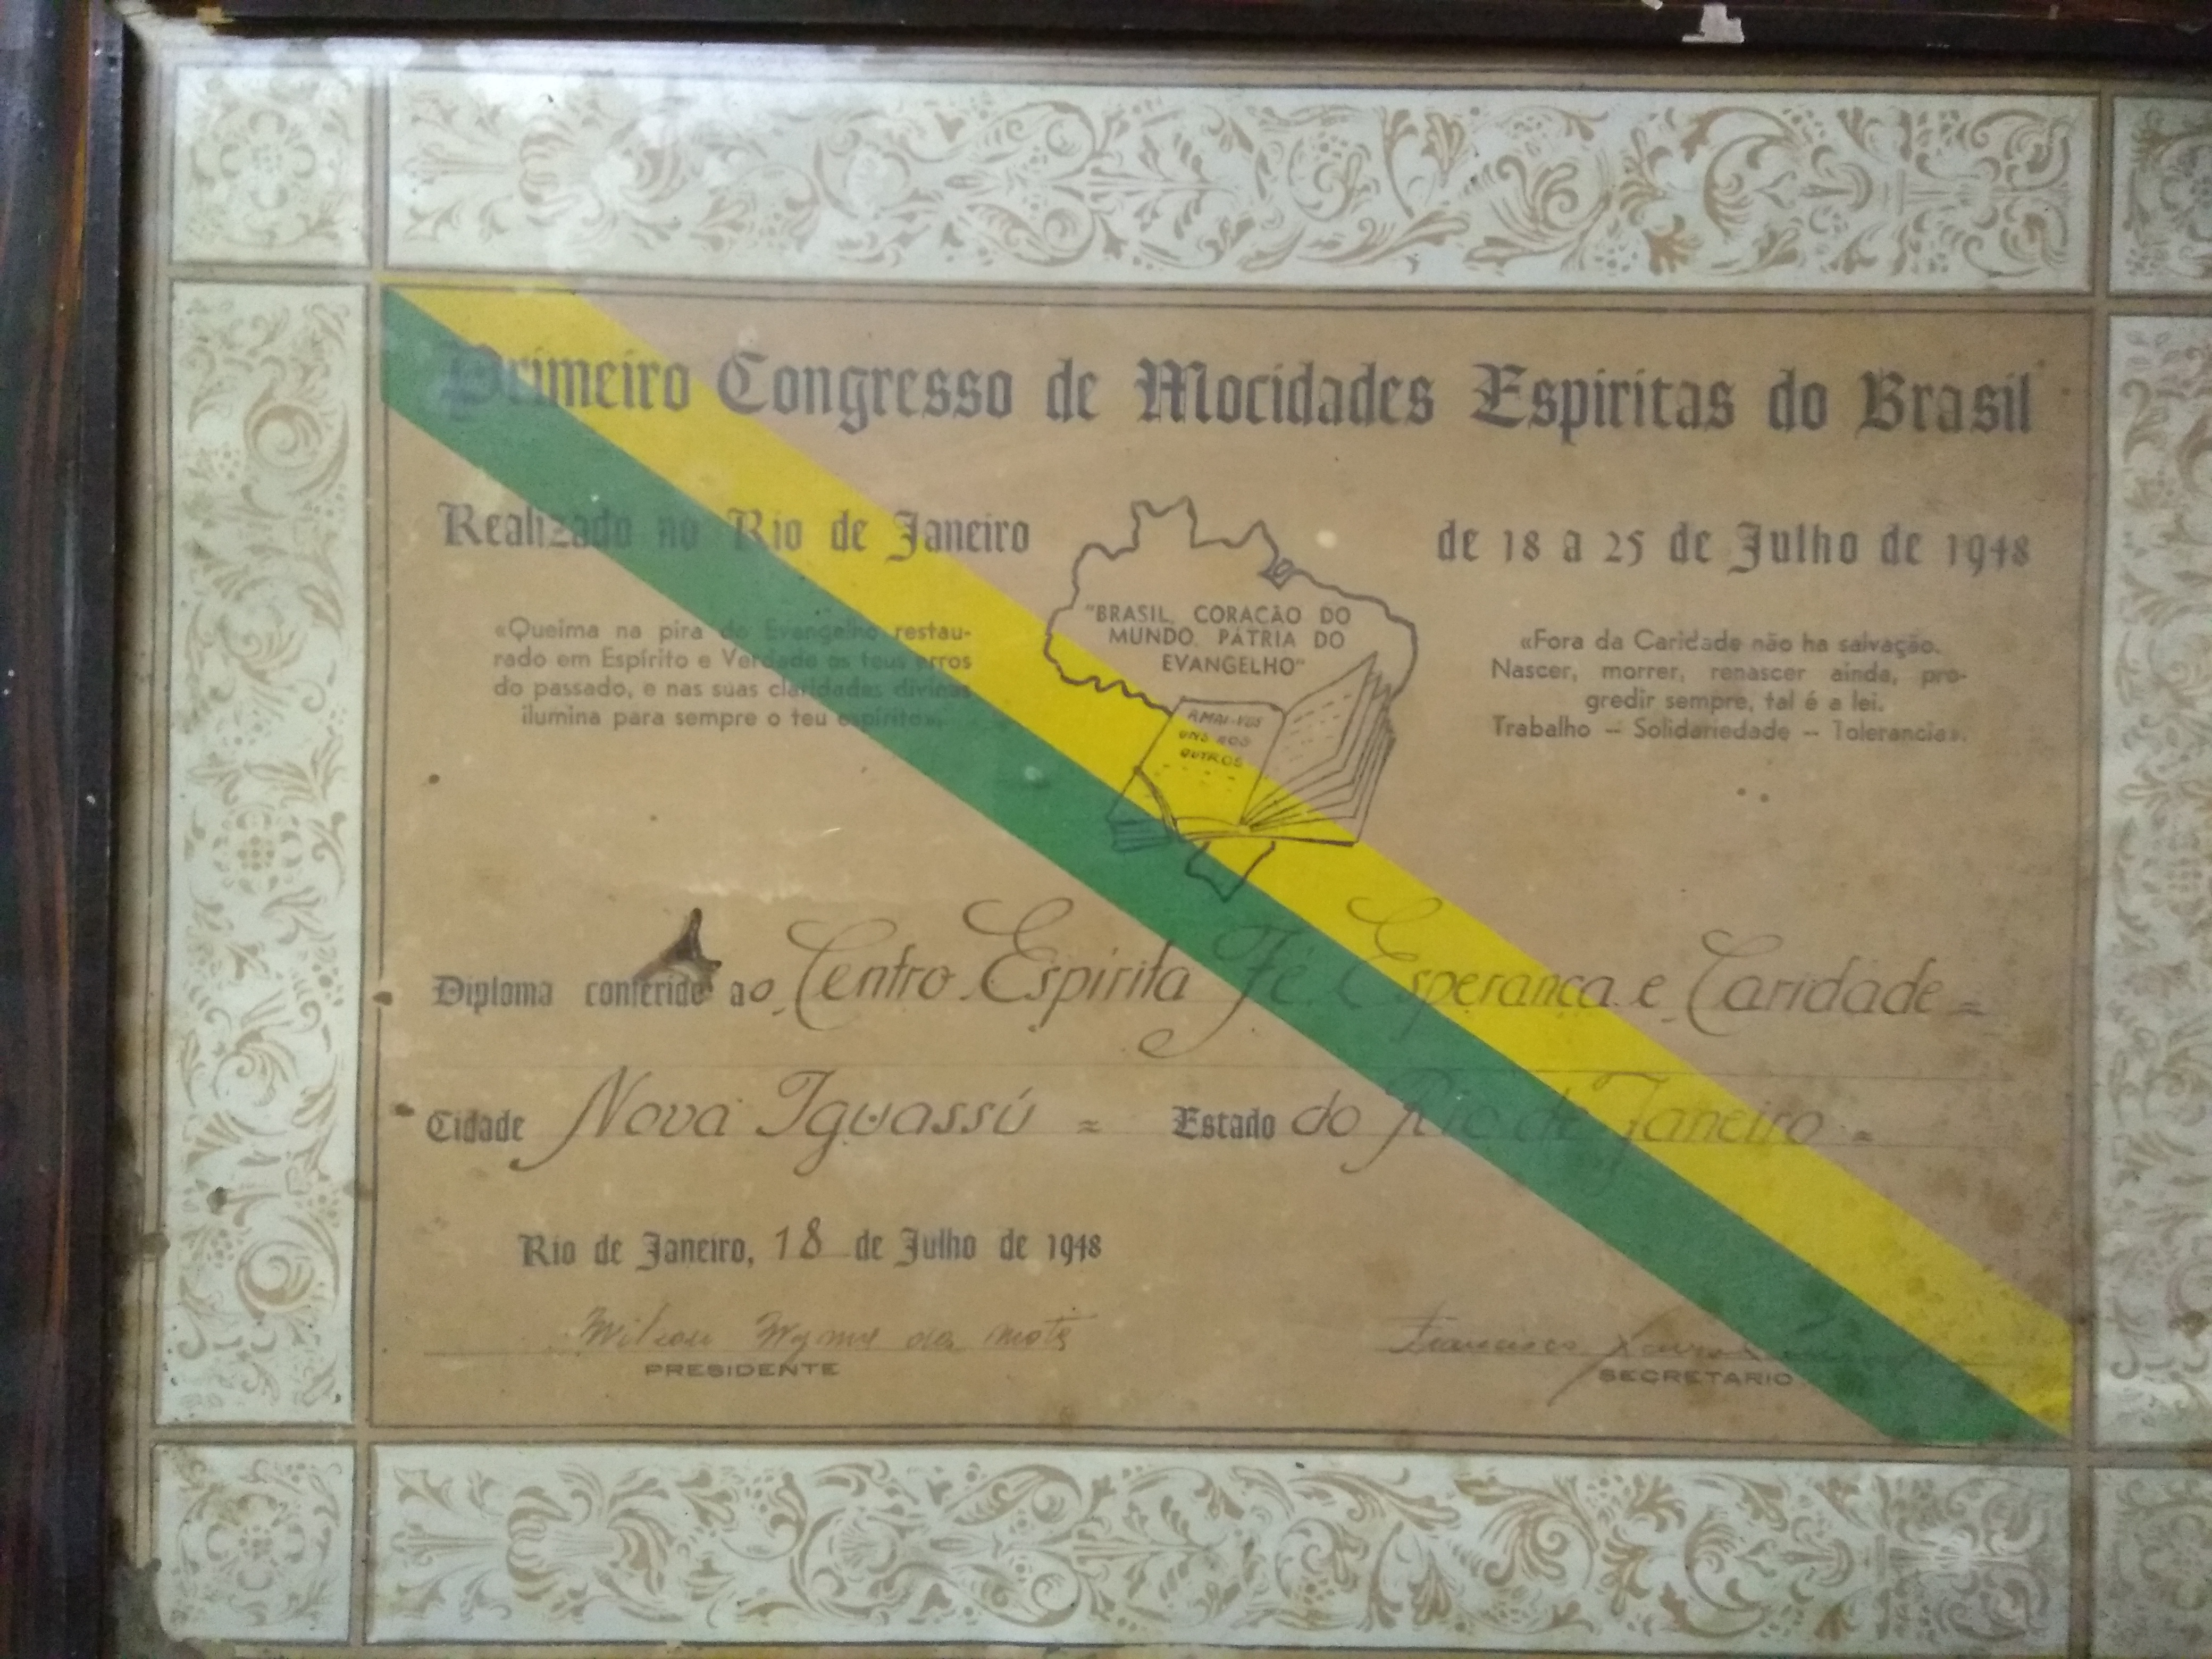 Primeiro Congresso de Mocidades Espiritas do Brasil
Realizado no Rio de Janeiro
de 18 a 25 de Julho de 1948
«Queima na pira do Evangelho restau-
rado em Espírito e Verdade os teus erros
do passado, e nas suas claridades divinas
ilumina para sempre o teu espírito».
"BRASIL, CORAÇÃO DO
MUNDO, PÁTRIA DO
EVANGELHO"
AMAI-VOS
UNS AOS
OUTROS
«Fora da Caridade não ha salvação.
Nascer, morrer, renascer ainda, pro-
gredir sempre, tal é a lei.
Trabalho — Solidariedade — Tolerancia».
Diploma conferido ao Centro Espirita Fé Esperança e Caridade =
Cidade Nova Iguassú = Estado do Rio de Janeiro =
Rio de Janeiro, 18 de Julho de 1948
Wilson da Mota
PRESIDENTE
Francisco
SECRETARIO